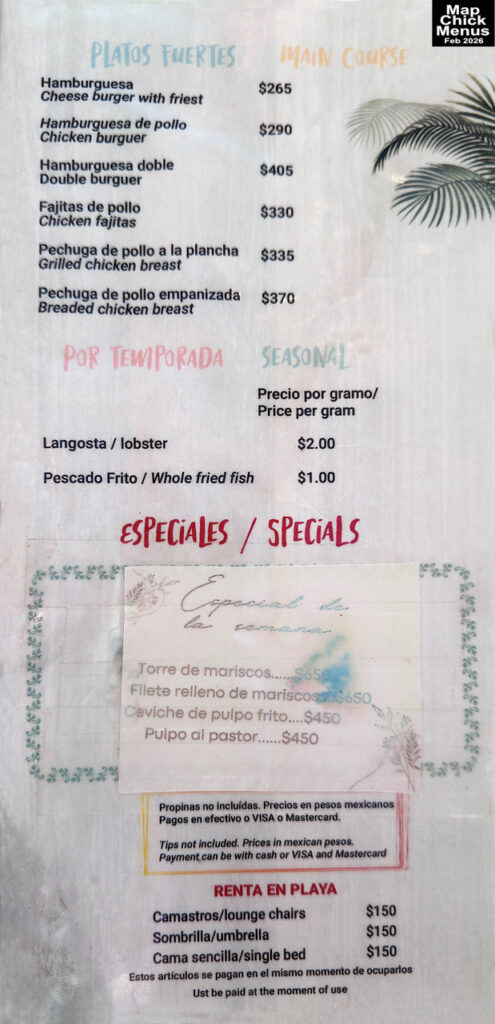 Map
Chick
Menus
Feb 2026
PLATOS FUERTES MAIN COURSE
Hamburguesa $265
Cheese burger with friest
Hamburguesa de pollo $290
Chicken burguer
Hamburguesa doble $405
Double burguer
Fajitas de pollo $330
Chicken fajitas
Pechuga de pollo a la plancha $335
Grilled chicken breast
Pechuga de pollo empanizada $370
Breaded chicken breast
POR TEMPORADA SEASONAL
Precio por gramo/
Price per gram
Langosta / lobster $2.00
Pescado Frito / Whole fried fish $1.00
ESPECIALES / SPECIALS
Especial de
la semana
Torre de mariscos......$650
Filete relleno de mariscos...$650
Ceviche de pulpo frito....$450
Pulpo al pastor......$450
Propinas no incluídas. Precios en pesos mexicanos
Pagos en efectivo o VISA o Mastercard.
Tips not included. Prices in mexican pesos.
Payment can be with cash or VISA and Mastercard
RENTA EN PLAYA
Camastros/lounge chairs $150
Sombrilla/umbrella $150
Cama sencilla/single bed $150
Estos artículos se pagan en el mismo momento de ocuparlos
Ust be paid at the moment of use